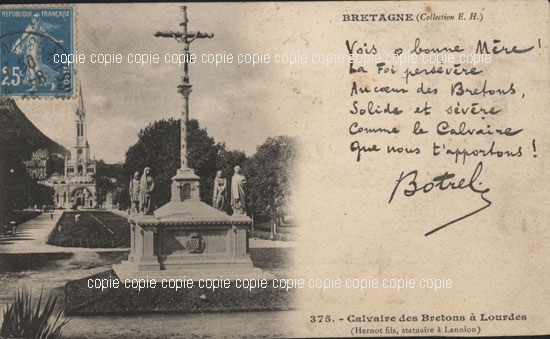 BRETAGNE (Collection E. H.)
REPUBLIQUE FRANÇAISE
25c
Vois ô bonne Mère !
La Foi persévère
Au cœur des Bretons,
Solide et sévère
Comme le Calvaire
Que nous t'apportons !
Botrel
copie copie copie copie copie copie copie copie
copie copie copie copie copie copie copie copie
375. - Calvaire des Bretons à Lourdes
(Hernot fils, statuaire à Lannion)